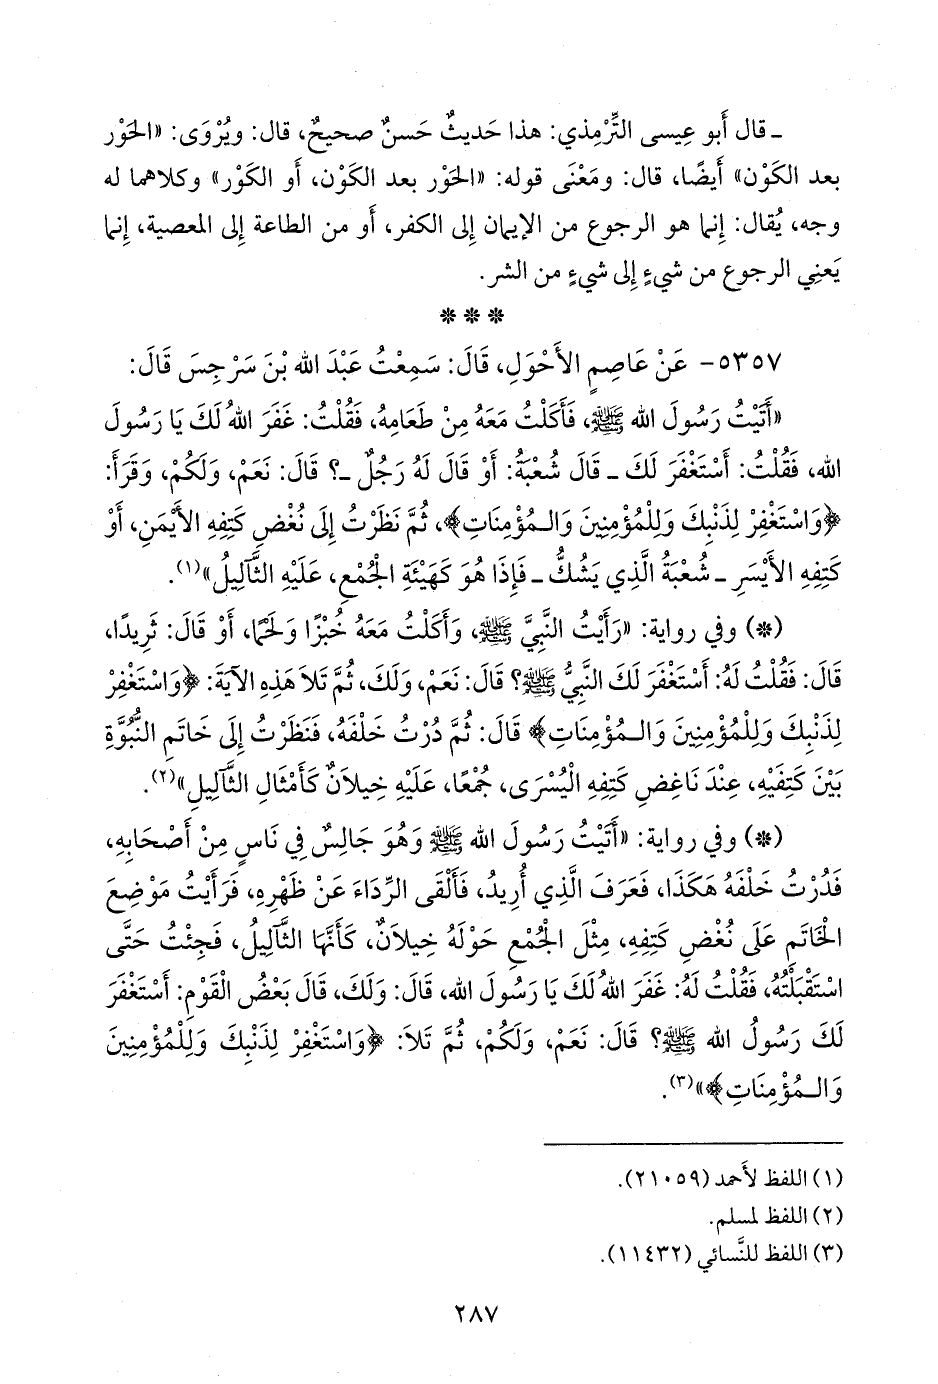 ـ قال أَبو عِيسى التِّرْمِذي: هذا حَديثٌ حَسنٌ صحيحٌ، قال: ويُرْوَى: «الحَوْر
بعد الكَوْن» أَيضًا، قال: ومَعْنَى قوله: «الحَوْر بعد الكَوْن، أَو الكَوْر» وكلاهما له
وجه، يُقال: إِنما هو الرجوع من الإِيمان إِلى الكفر، أَو من الطاعة إِلى المعصية، إِنما
يَعنِي الرجوع من شيءٍ إِلى شيءٍ من الشر.
* * *
٥٣٥٧- عَنْ عَاصِمٍ الأَحْوَلِ، قَالَ: سَمِعْتُ عَبْدَ الله بْنَ سَرْجِسَ قَالَ:
«أَتَيْتُ رَسُولَ الله ﷺ، فَأَكَلْتُ مَعَهُ مِنْ طَعَامِهِ، فَقُلْتُ: غَفَرَ اللهُ لَكَ يَا رَسُولَ
الله، فَقُلْتُ: أَسْتَغْفَرَ لَكَ ـ قَالَ شُعْبَةُ: أَوْ قَالَ لَهُ رَجُلٌ ـ؟ قَالَ: نَعَمْ، وَلَكُمْ، وَقَرَأَ:
﴿وَاسْتَغْفِرْ لِذَنْبِكَ وَلِلْمُؤْمِنِينَ وَالـمُؤْمِنَاتِ﴾، ثُمَّ نَظَرْتُ إِلَى نُغْضِ كَتِفِهِ الأَيْمَنِ، أَوْ
كَتِفِهِ الأَيْسَرِ ـ شُعْبَةُ الَّذِي يَشُكُّ ـ فَإِذَا هُوَ كَهَيْئَةِ الجُمْعِ، عَلَيْهِ الثَّآلِيلُ»(١).
(*) وفي رواية: «رَأَيْتُ النَّبِيَّ ﷺ، وَأَكَلْتُ مَعَهُ خُبْزًا وَلَحْمًا، أَوْ قَالَ: ثَرِيدًا،
قَالَ: فَقُلْتُ لَهُ: أَسْتَغْفَرَ لَكَ النَّبِيُّ ﷺ؟ قَالَ: نَعَمْ، وَلَكَ، ثُمَّ تَلاَ هَذِهِ الآيَةَ: ﴿وَاسْتَغْفِرْ
لِذَنْبِكَ وَلِلْمُؤْمِنِينَ وَالـمُؤْمِنَاتِ﴾ قَالَ: ثُمَّ دُرْتُ خَلْفَهُ، فَنَظَرْتُ إِلَى خَاتَمِ النُّبُوَّةِ
بَيْنَ كَتِفَيْهِ، عِنْدَ نَاغِضِ كَتِفِهِ الْيُسْرَى، جُمْعًا، عَلَيْهِ خِيلاَنٌ كَأَمْثَالِ الثَّآلِيلِ»(٢).
(*) وفي رواية: «أَتَيْتُ رَسُولَ الله ﷺ وَهُوَ جَالِسٌ فِي نَاسٍ مِنْ أَصْحَابِهِ،
فَدُرْتُ خَلْفَهُ هَكَذَا، فَعَرَفَ الَّذِي أُرِيدُ، فَأَلْقَى الرِّدَاءَ عَنْ ظَهْرِهِ، فَرَأَيْتُ مَوْضِعَ
الخَاتَمِ عَلَى نُغْضِ كَتِفِهِ، مِثْلَ الجُمْعِ حَوْلَهُ خِيلاَنٌ، كَأَنَّهَا الثَّآلِيلُ، فَجِئْتُ حَتَّى
اسْتَقْبَلْتُهُ، فَقُلْتُ لَهُ: غَفَرَ اللهُ لَكَ يَا رَسُولَ الله، قَالَ: وَلَكَ، قَالَ بَعْضُ الْقَوْمِ: أَسْتَغْفَرَ
لَكَ رَسُولُ الله ﷺ؟ قَالَ: نَعَمْ، وَلَكُمْ، ثُمَّ تَلاَ: ﴿وَاسْتَغْفِرْ لِذَنْبِكَ وَلِلْمُؤْمِنِينَ
وَالـمُؤْمِنَاتِ﴾»(٣).
(١) اللفظ لأَحمد (٢١٠٥٩).
(٢) اللفظ لمسلم.
(٣) اللفظ للنَّسائي (١١٤٣٢).
٢٨٧